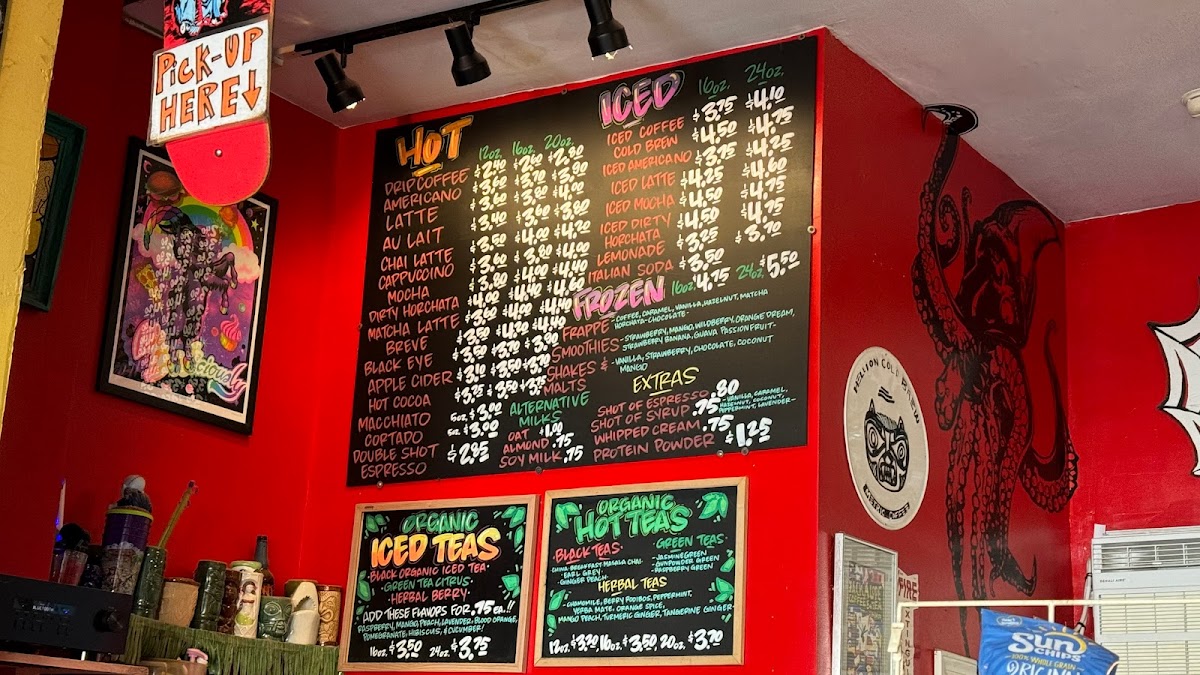 PICK-UP
HERE↓
HOT
12oz. 16oz. 20oz.
DRIP COFFEE $2.40 $2.60 $2.80
AMERICANO
LATTE
AU LAIT
CHAI LATTE
CAPPUCCINO
MOCHA
DIRTY HORCHATA
MATCHA LATTE
BREVE
BLACK EYE
APPLE CIDER
HOT COCOA
MACCHIATO 5oz. $3.00
CORTADO 5oz. $3.00
DOUBLE SHOT
ESPRESSO $2.85
ALTERNATIVE
MILKS
OAT $1.00
ALMOND .75
SOY MILK .75
ICED 16oz. 24oz.
ICED COFFEE $3.75 $4.10
COLD BREW $4.50 $4.75
ICED AMERICANO $3.75 $4.25
ICED LATTE $4.25 $4.60
ICED MOCHA $4.50 $4.75
ICED DIRTY
HORCHATA $4.50 $4.75
LEMONADE $3.25 $3.70
ITALIAN SODA $3.50
FROZEN 16oz. $4.75 24oz. $5.50
FRAPPE -COFFEE, CARAMEL, VANILLA, HAZELNUT, MATCHA
HORCHATA-CHOCOLATE-
SMOOTHIES -STRAWBERRY, MANGO, WILDBERRY, ORANGE DREAM,
STRAWBERRY BANANA, GUAVA PASSIONFRUIT-
SHAKES &
MALTS -VANILLA, STRAWBERRY, CHOCOLATE, COCONUT
MANGO
EXTRAS
SHOT OF ESPRESSO .80
SHOT OF SYRUP .75 -VANILLA, CARAMEL,
HAZELNUT, COCONUT,
PEPPERMINT, LAVENDER-
WHIPPED CREAM .75
PROTEIN POWDER $1.25
ORGANIC
ICED TEAS
BLACK ORGANIC ICED TEA·
·GREEN TEA CITRUS·
·HERBAL BERRY·
ADD THESE FLAVORS FOR .75 ea.!!
RASPBERRY, MANGO, PEACH, LAVENDER, BLOOD ORANGE,
POMEGRANATE, HIBISCUS, & CUCUMBER!
16oz. $3.50 24oz. $3.75
ORGANIC
HOT TEAS
·BLACK TEAS·
CHINA BREAKFAST MASALA CHAI
·EARL GREY·
GINGER PEACH·
·GREEN TEAS·
-JASMINE GREEN
-GUNPOWDER GREEN
-RASPBERRY GREEN
HERBAL TEAS
-CHAMOMILE, BERRY ROOIBOS, PEPPERMINT,
YERBA MATE, ORANGE SPICE,
MANGO PEACH, TURMERIC GINGER, TANGERINE GINGER-
12oz. $3.30 16oz. $3.50 20oz. $3.70
HELLION COLD BREW
METRIC COFFEE
FIRE
Sun
CHIPS
100% WHOLE GRAIN
ORIGINAL